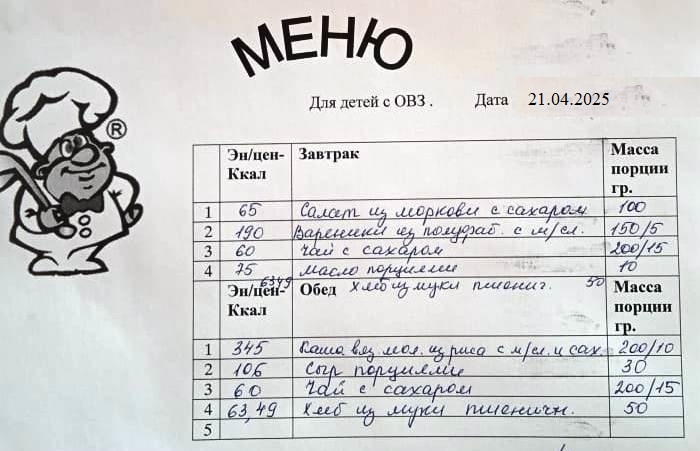 МЕНЮ
®
Для детей с ОВЗ . Дата 21.04.2025
Эн/цен-Ккал Завтрак Масса порции гр.
1 65 Салат из моркови с сахаром 100
2 190 Вареники из полуфаб. с м/сл. 150/5
3 60 Чай с сахаром 200/15
4 75 Масло порциями 10
6349 Хлеб из муки пшениг. 50
Эн/цен-Ккал Обед Масса порции гр.
1 345 Каша вяз мол. из риса с м/сл. и сах. 200/10
2 106 Сыр порциями 30
3 60 Чай с сахаром 200/15
4 63,49 Хлеб из муки пшеничн. 50
5